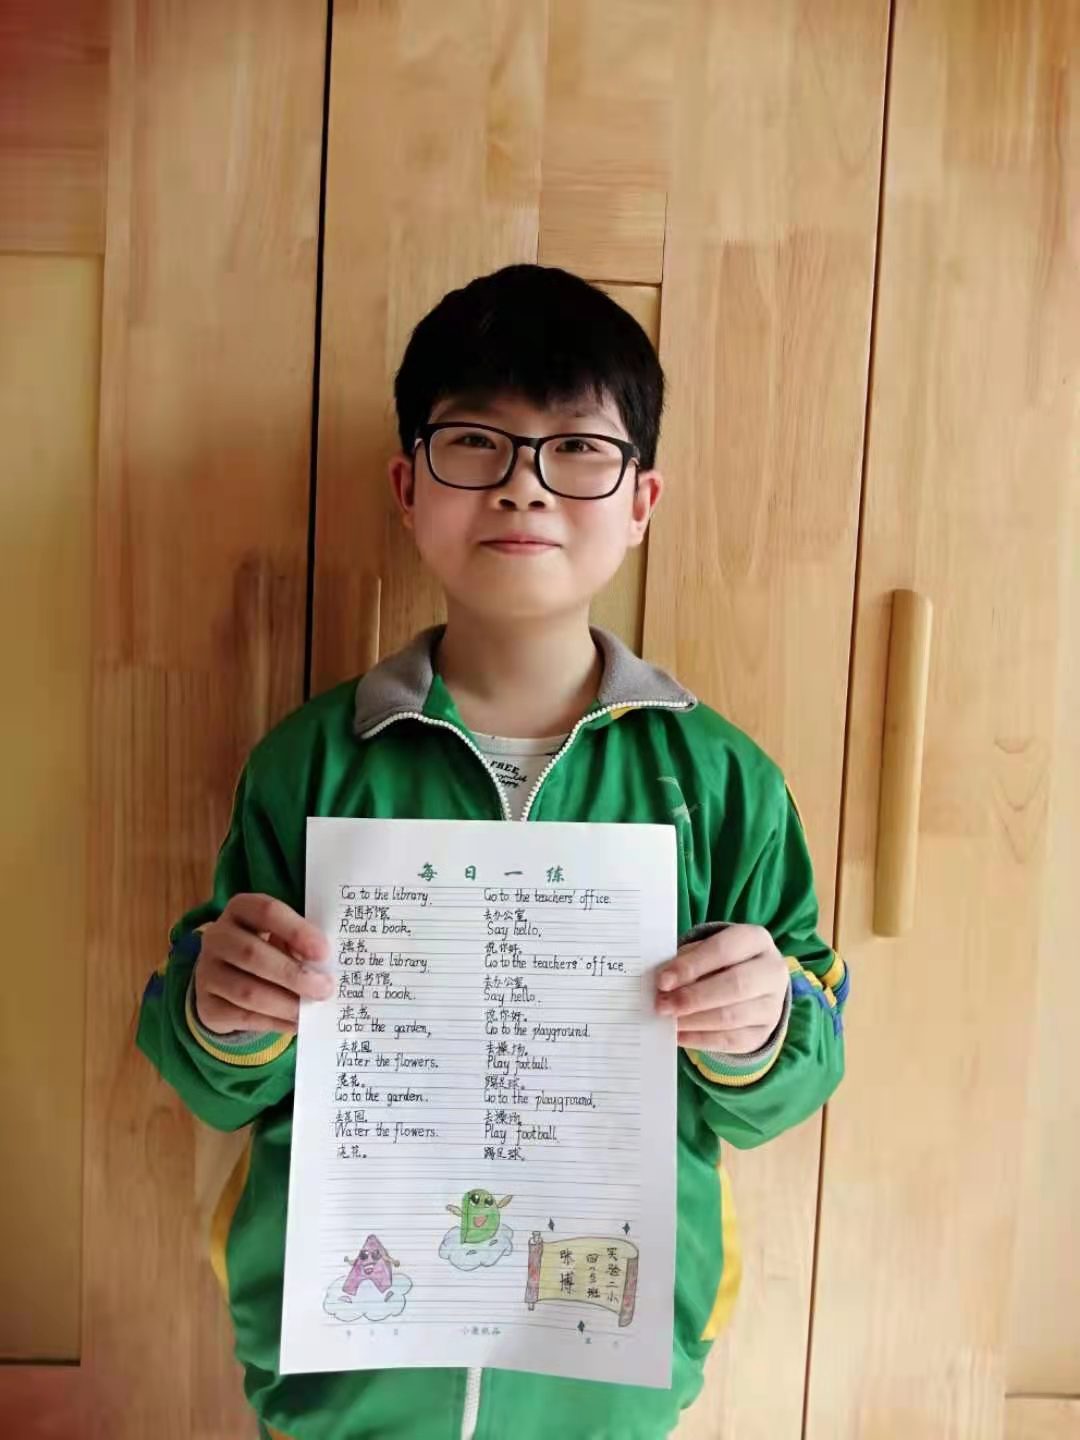 FREE
每日一练
Go to the library. Go to the teachers' office.
去图书馆。 去办公室。
Read a book. Say hello.
读书。 说你好。
Go to the library. Go to the teachers' office.
去图书馆。 去办公室。
Read a book. Say hello.
读书。 说你好。
Go to the garden. Go to the playground.
去花园。 去操场。
Water the flowers. Play football.
浇花。 踢足球。
Go to the garden. Go to the playground.
去花园。 去操场。
Water the flowers. Play football.
浇花。 踢足球。
实验二小
班
张博